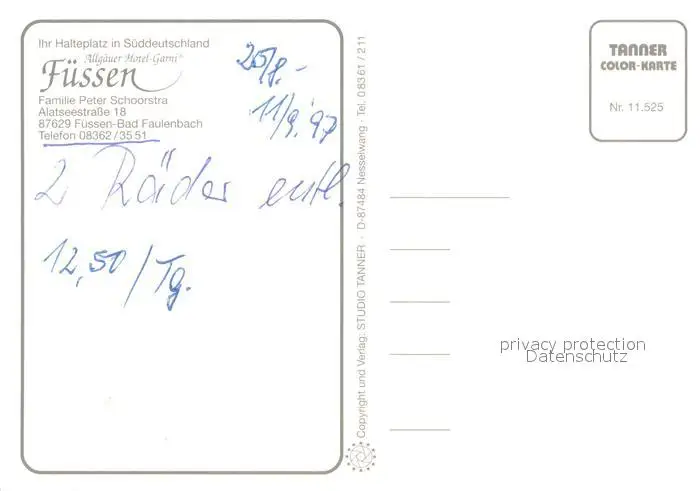 Ihr Halteplatz in Süddeutschland
Allgäuer Hotel-Garni
Füssen
Familie Peter Schoorstra
Alatseestraße 18
87629 Füssen-Bad Faulenbach
Telefon 08362/35 51
25/8.-
11/9.'97
2 Räder entl.
12,50/Tg.
Copyright und Verlag: STUDIO TANNER · D-87484 Nesselwang · Tel. 0 83 61 / 2 11
TANNER
COLOR-KARTE
Nr. 11.525
privacy protection
Datenschutz